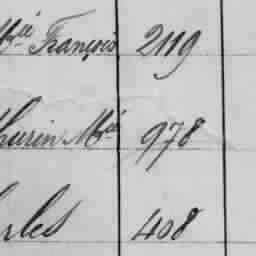 Mle François 2119
thurin Mel 978
rles 408